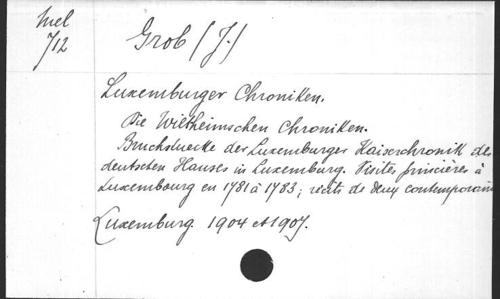 Mel
712
Grob (J.)
Luxemburger Chroniken.
Die Wiltheimschen Chroniken.
Bruchstuecke der Luxemburger Kaiserchronik des
deutschen Hauses in Luxemburg. Visites princières à
Luxembourg en 1781 à 1783; récits de deux contemporains
Luxemburg. 1904 et 1907.